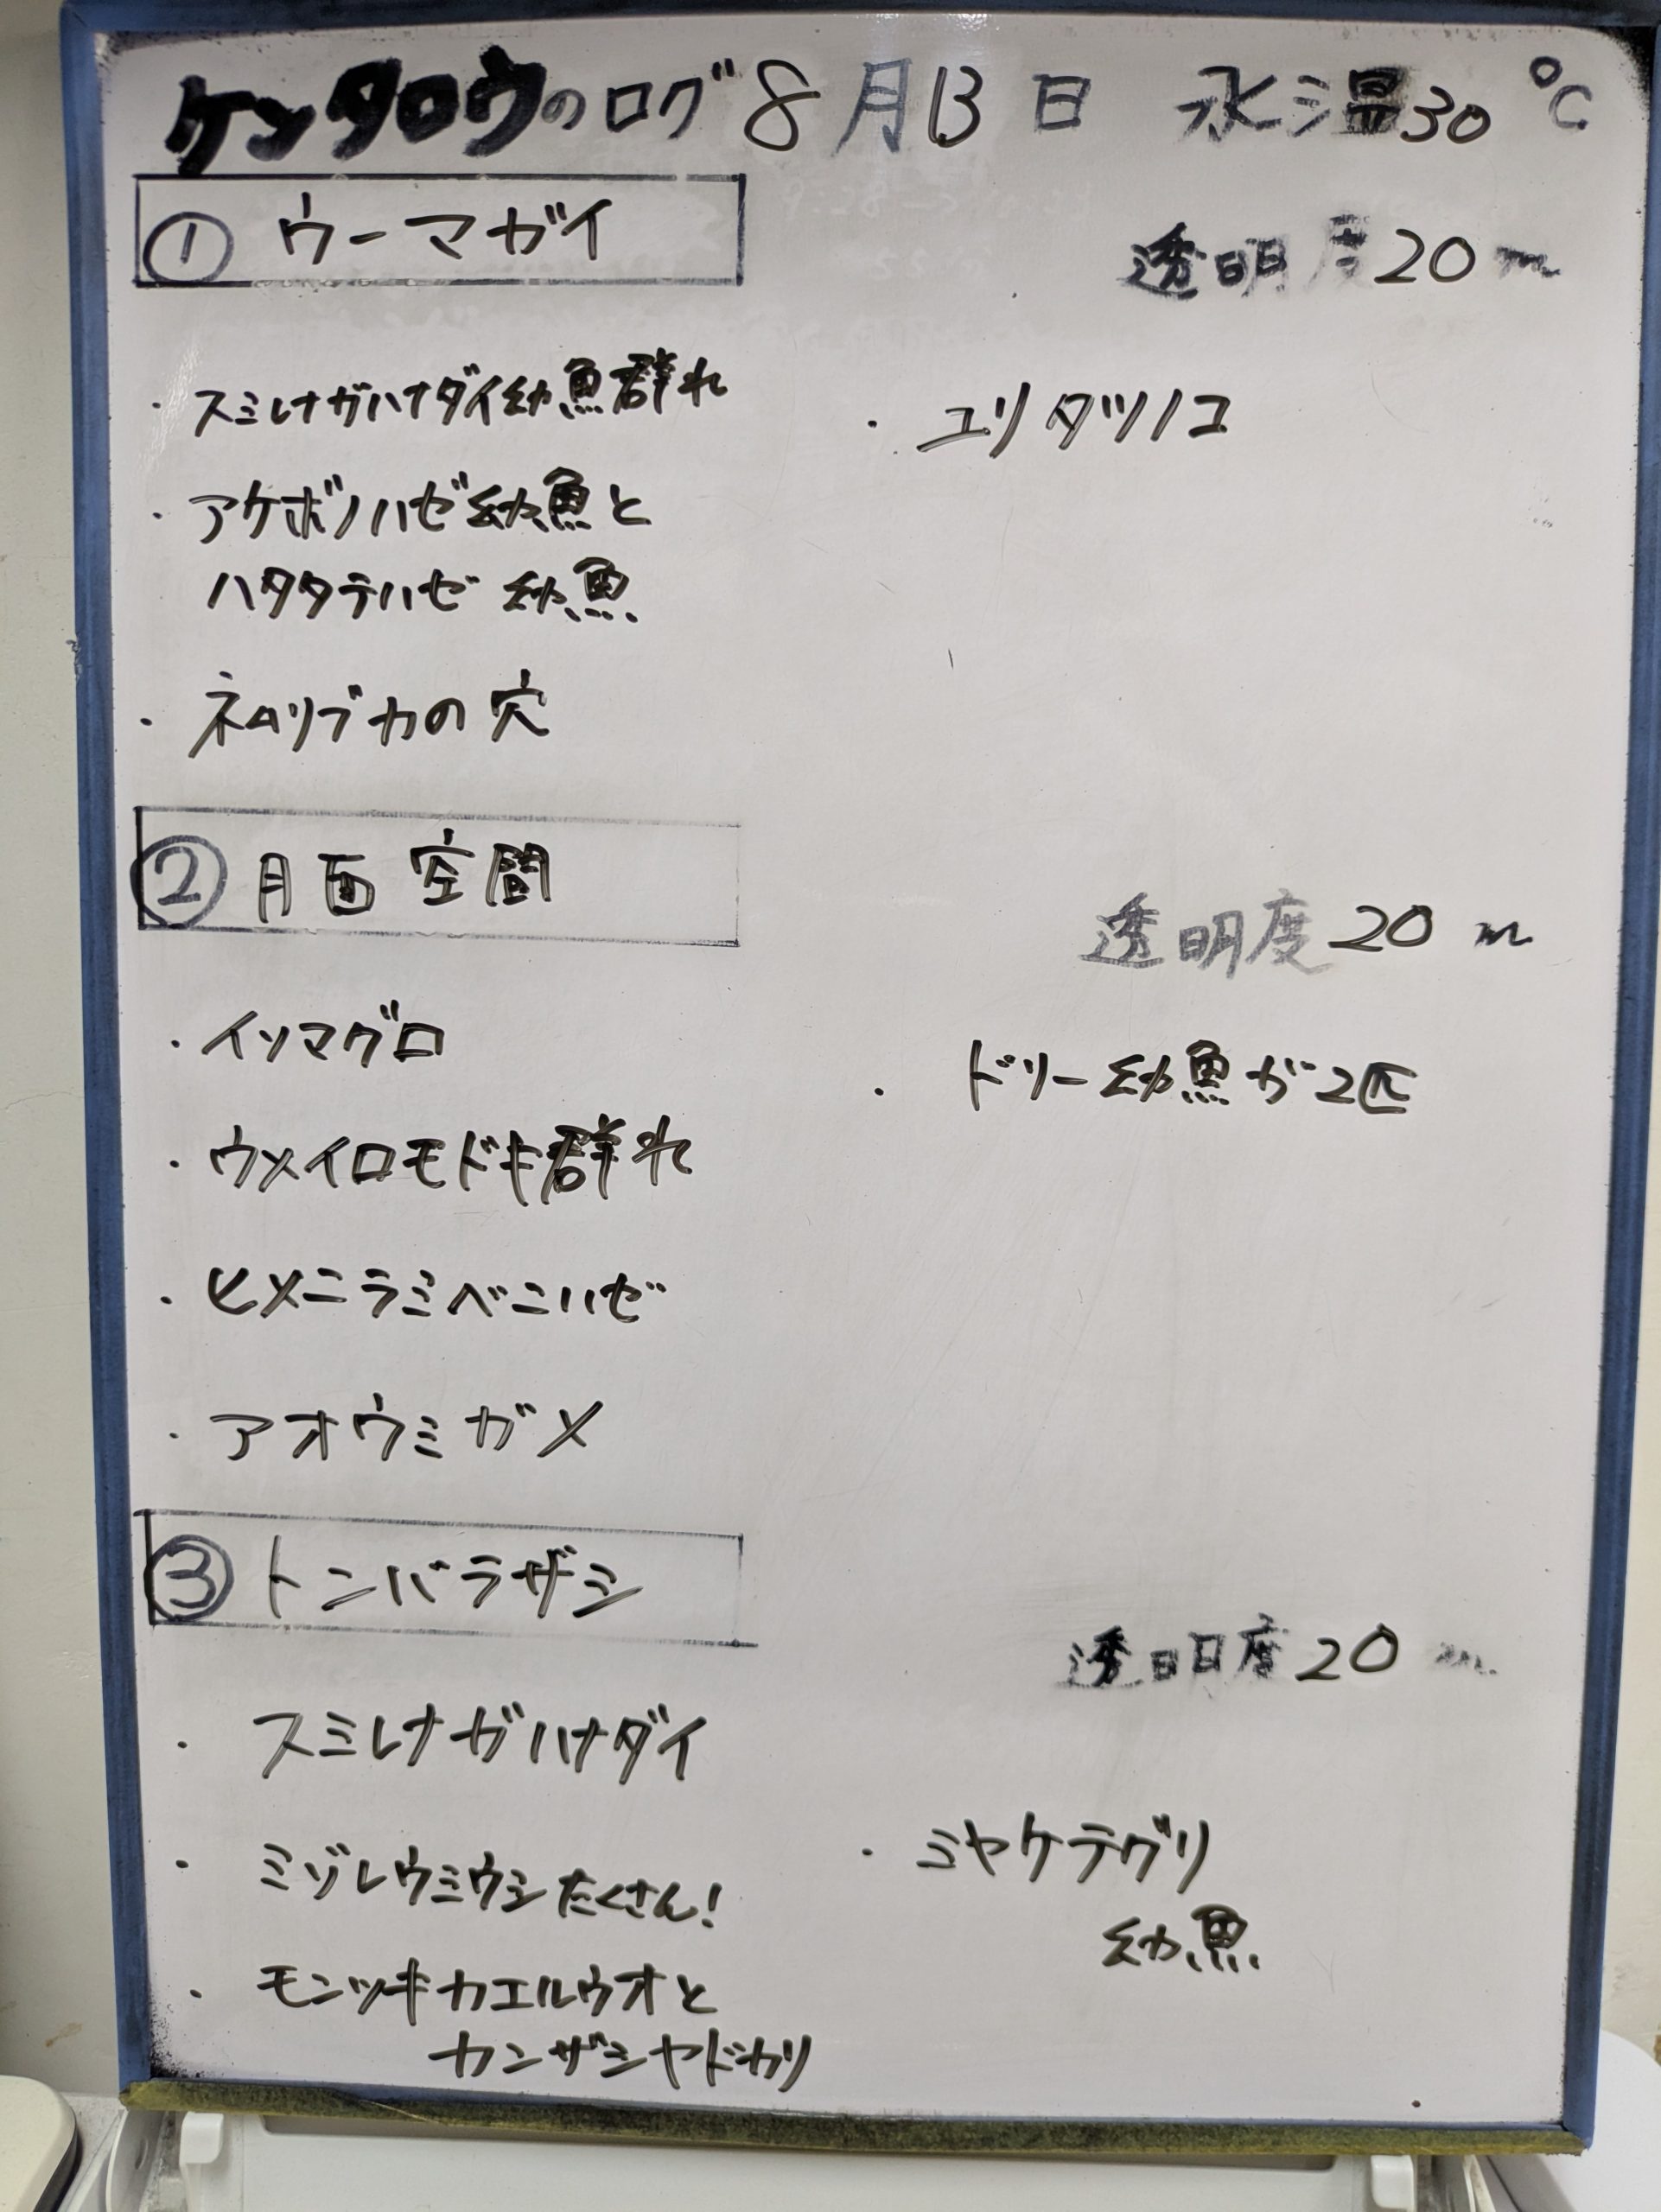 ケンタロウのログ 8月13日 水温30℃
① ウーマガイ
透明度20m
・スミレナガハナダイ幼魚群れ
・ユリタツノコ
・アケボノハゼ幼魚と
ハタタテハゼ幼魚
・ネムリブカの穴
② 月面空間
透明度20m
・イソマグロ
・ドリー幼魚が2匹
・ウメイロモドキ群れ
・ヒメニラミベニハゼ
・アオウミガメ
③ トンバラザシ
透明度20m
・スミレナガハナダイ
・ミゾレウミウシたくさん!
・ミヤケテグリ
幼魚
・モンツキカエルウオと
カンザシヤドカリ